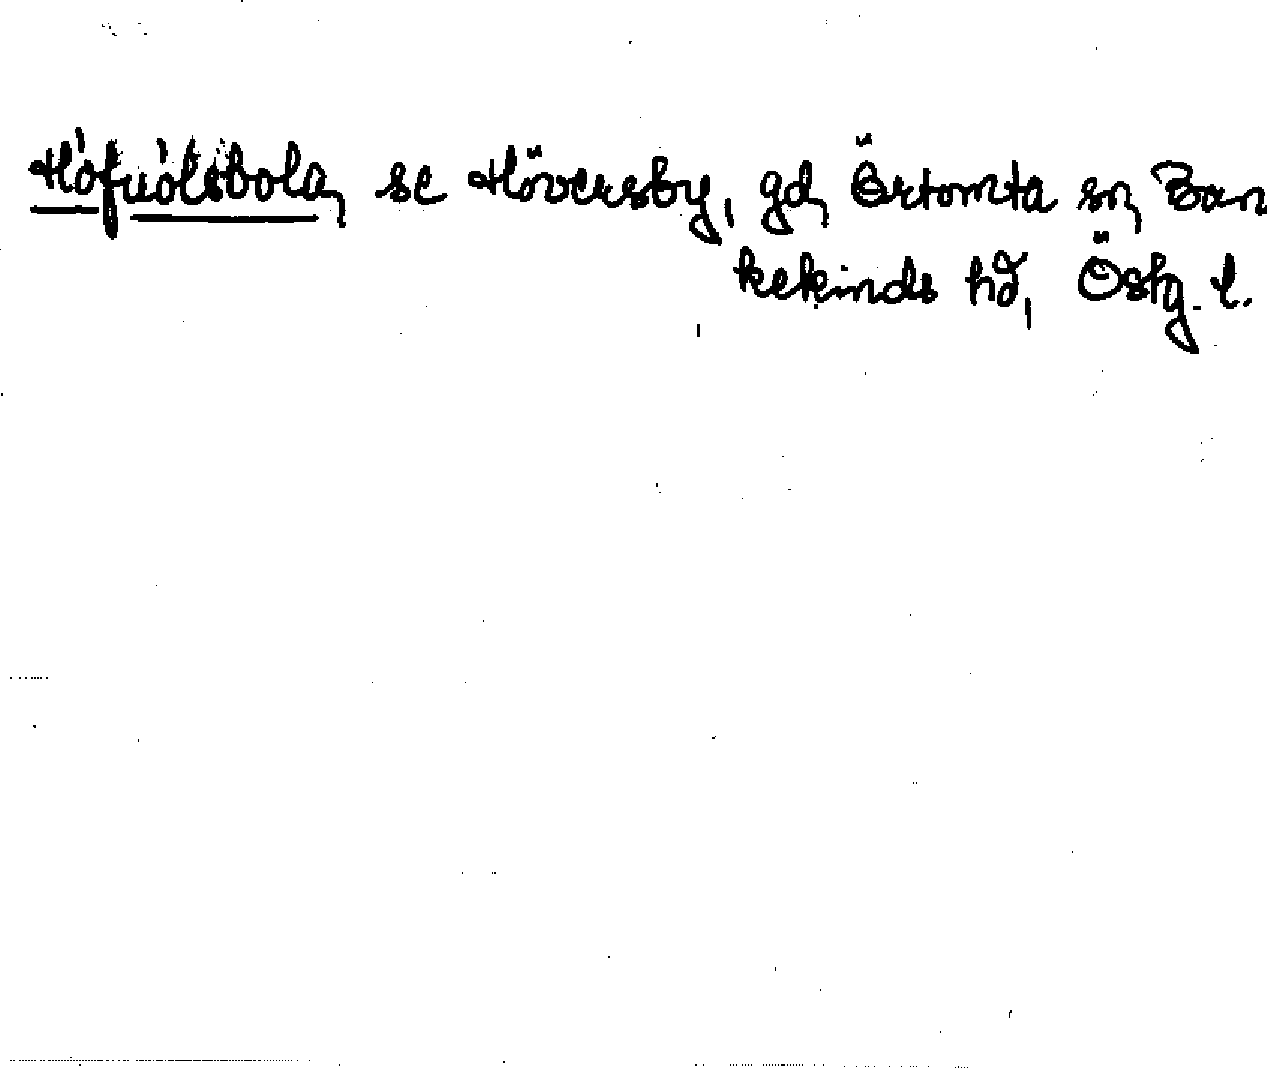 Hófuólsbola, se Höversby, gd, Örtomta sn, Ban
kekinds hd, Östg. l.